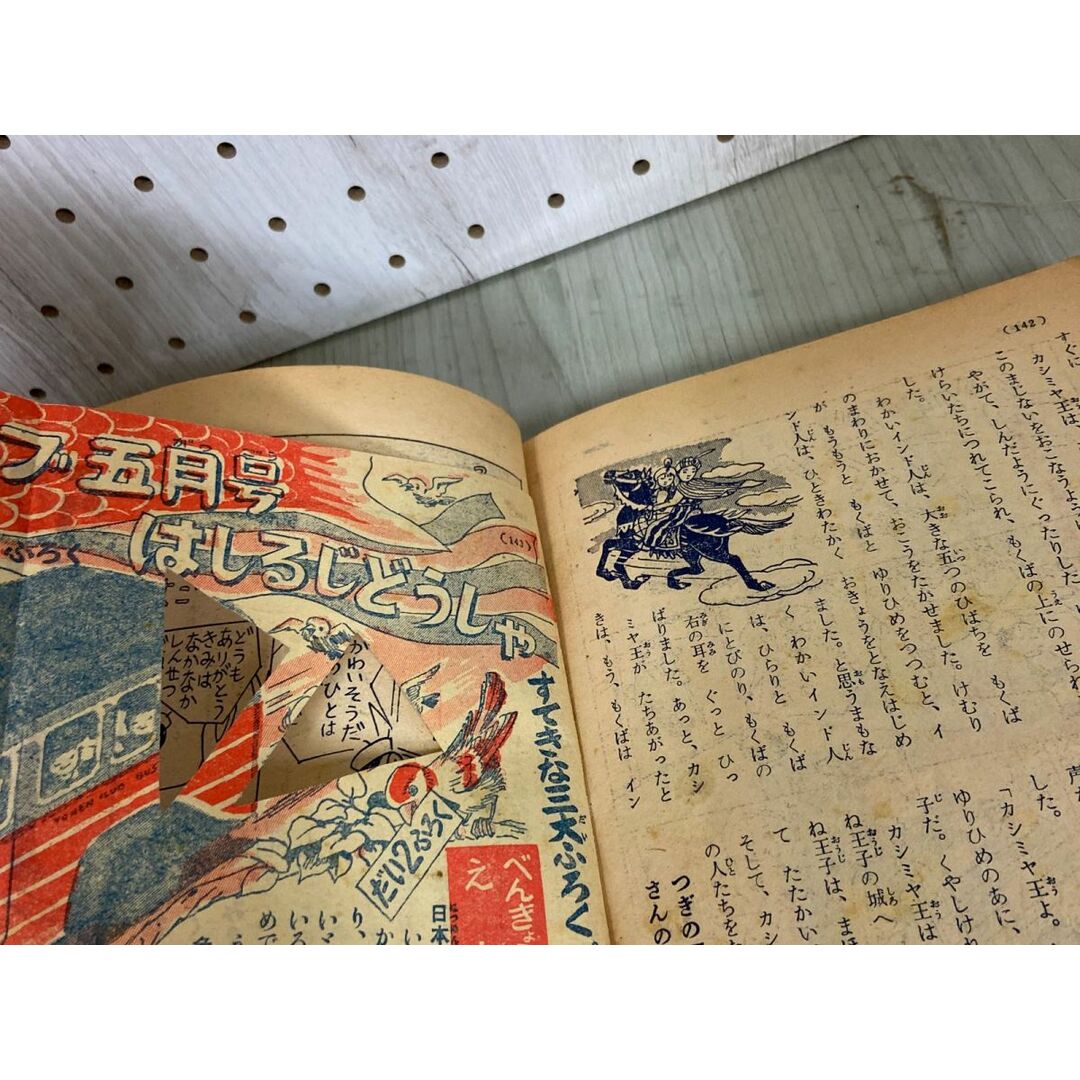 (142)
カシミヤ王は、
すぐに
このまじないをおこなうよう
やがて、しんだようにぐったりした
けらいたちにつれてこられ、もくばの上にのせられ
した。
わかいインド人は、大きな五つのひばちを もくば
のまわりにおかせて、おこうをたかせました。けむり
が もうもうと もくばと ゆりひめをつつむと、イ
ンド人は、ひときわたかく おきょうをとなえはじめ
ました。と思うまもな
く わかいインド人
は、ひらりと もくば
にとびのり、もくばの
右の耳を ぐっと ひっ
ぱりました。あっと、カシ
ミヤ王が たちあがったと
きは、もう、もくばは イン
声
した。
「カシミヤ王よ。
ゆりひめのあに、
子だ。くやしけれ
カシミヤ王は
ね王子の城へ
ね王子は、まほ
て たたかい
そして、カシ
の人たちを
つぎの
さんの
ブ 五月号
ふろく
はしるじどうしゃ
(143)
すてきな三大ふろく
どうも
ありがとう
きみは
なかなか
しんせつ
かわいそうだ
のひとは
だい2ふろく
べんきょ
え
日本